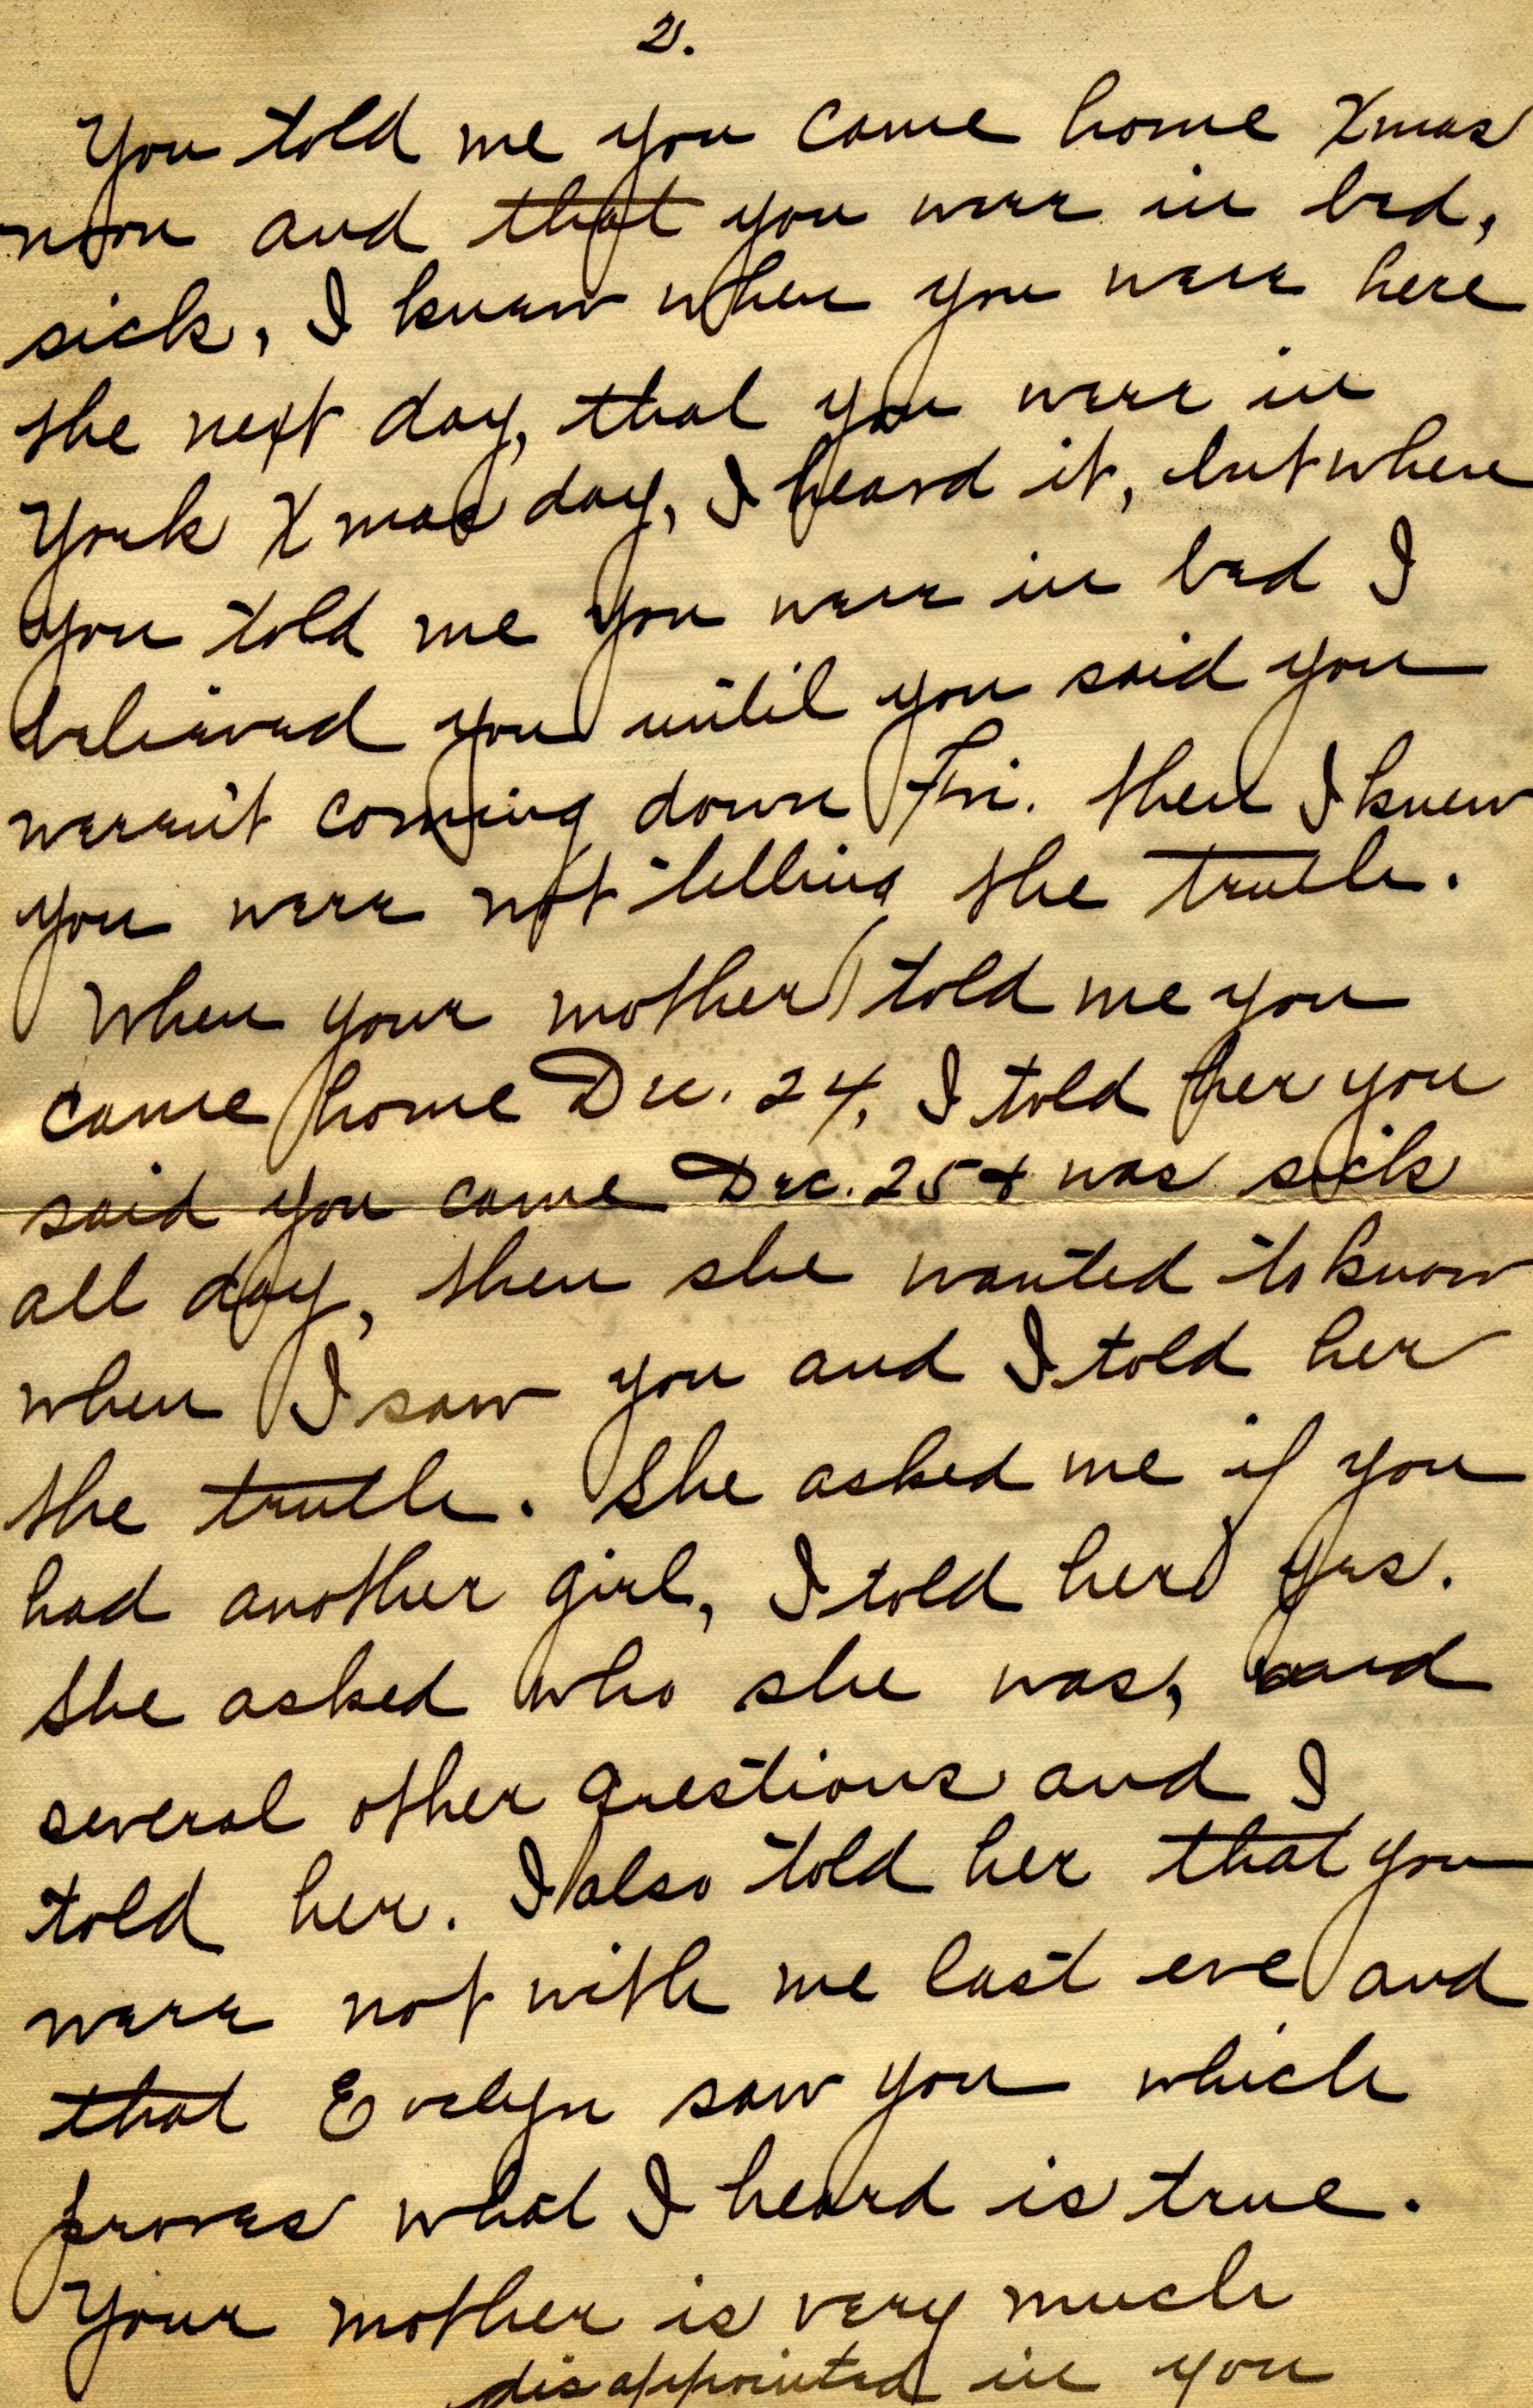 2.
You told me you came home Xmas
noon and that you were in bed,
sick, I knew when you were here
the next day, that you were in
York Xmas day, I heard it, but when
you told me you were in bed I
believed you until you said you
weren't coming down Fri. then I knew
you were not telling the truth.
When your mother told me you
came home Dec. 24, I told her you
said you came Dec. 25 & was sick
all day, then she wanted to know
when I saw you and I told her
the truth. She asked me if you
had another girl, I told her yes.
She asked who she was, and
several other questions and I
told her. I also told her that you
were not with me last eve and
that Evelyn saw you which
proves what I heard is true.
Your mother is very much
disappointed in you